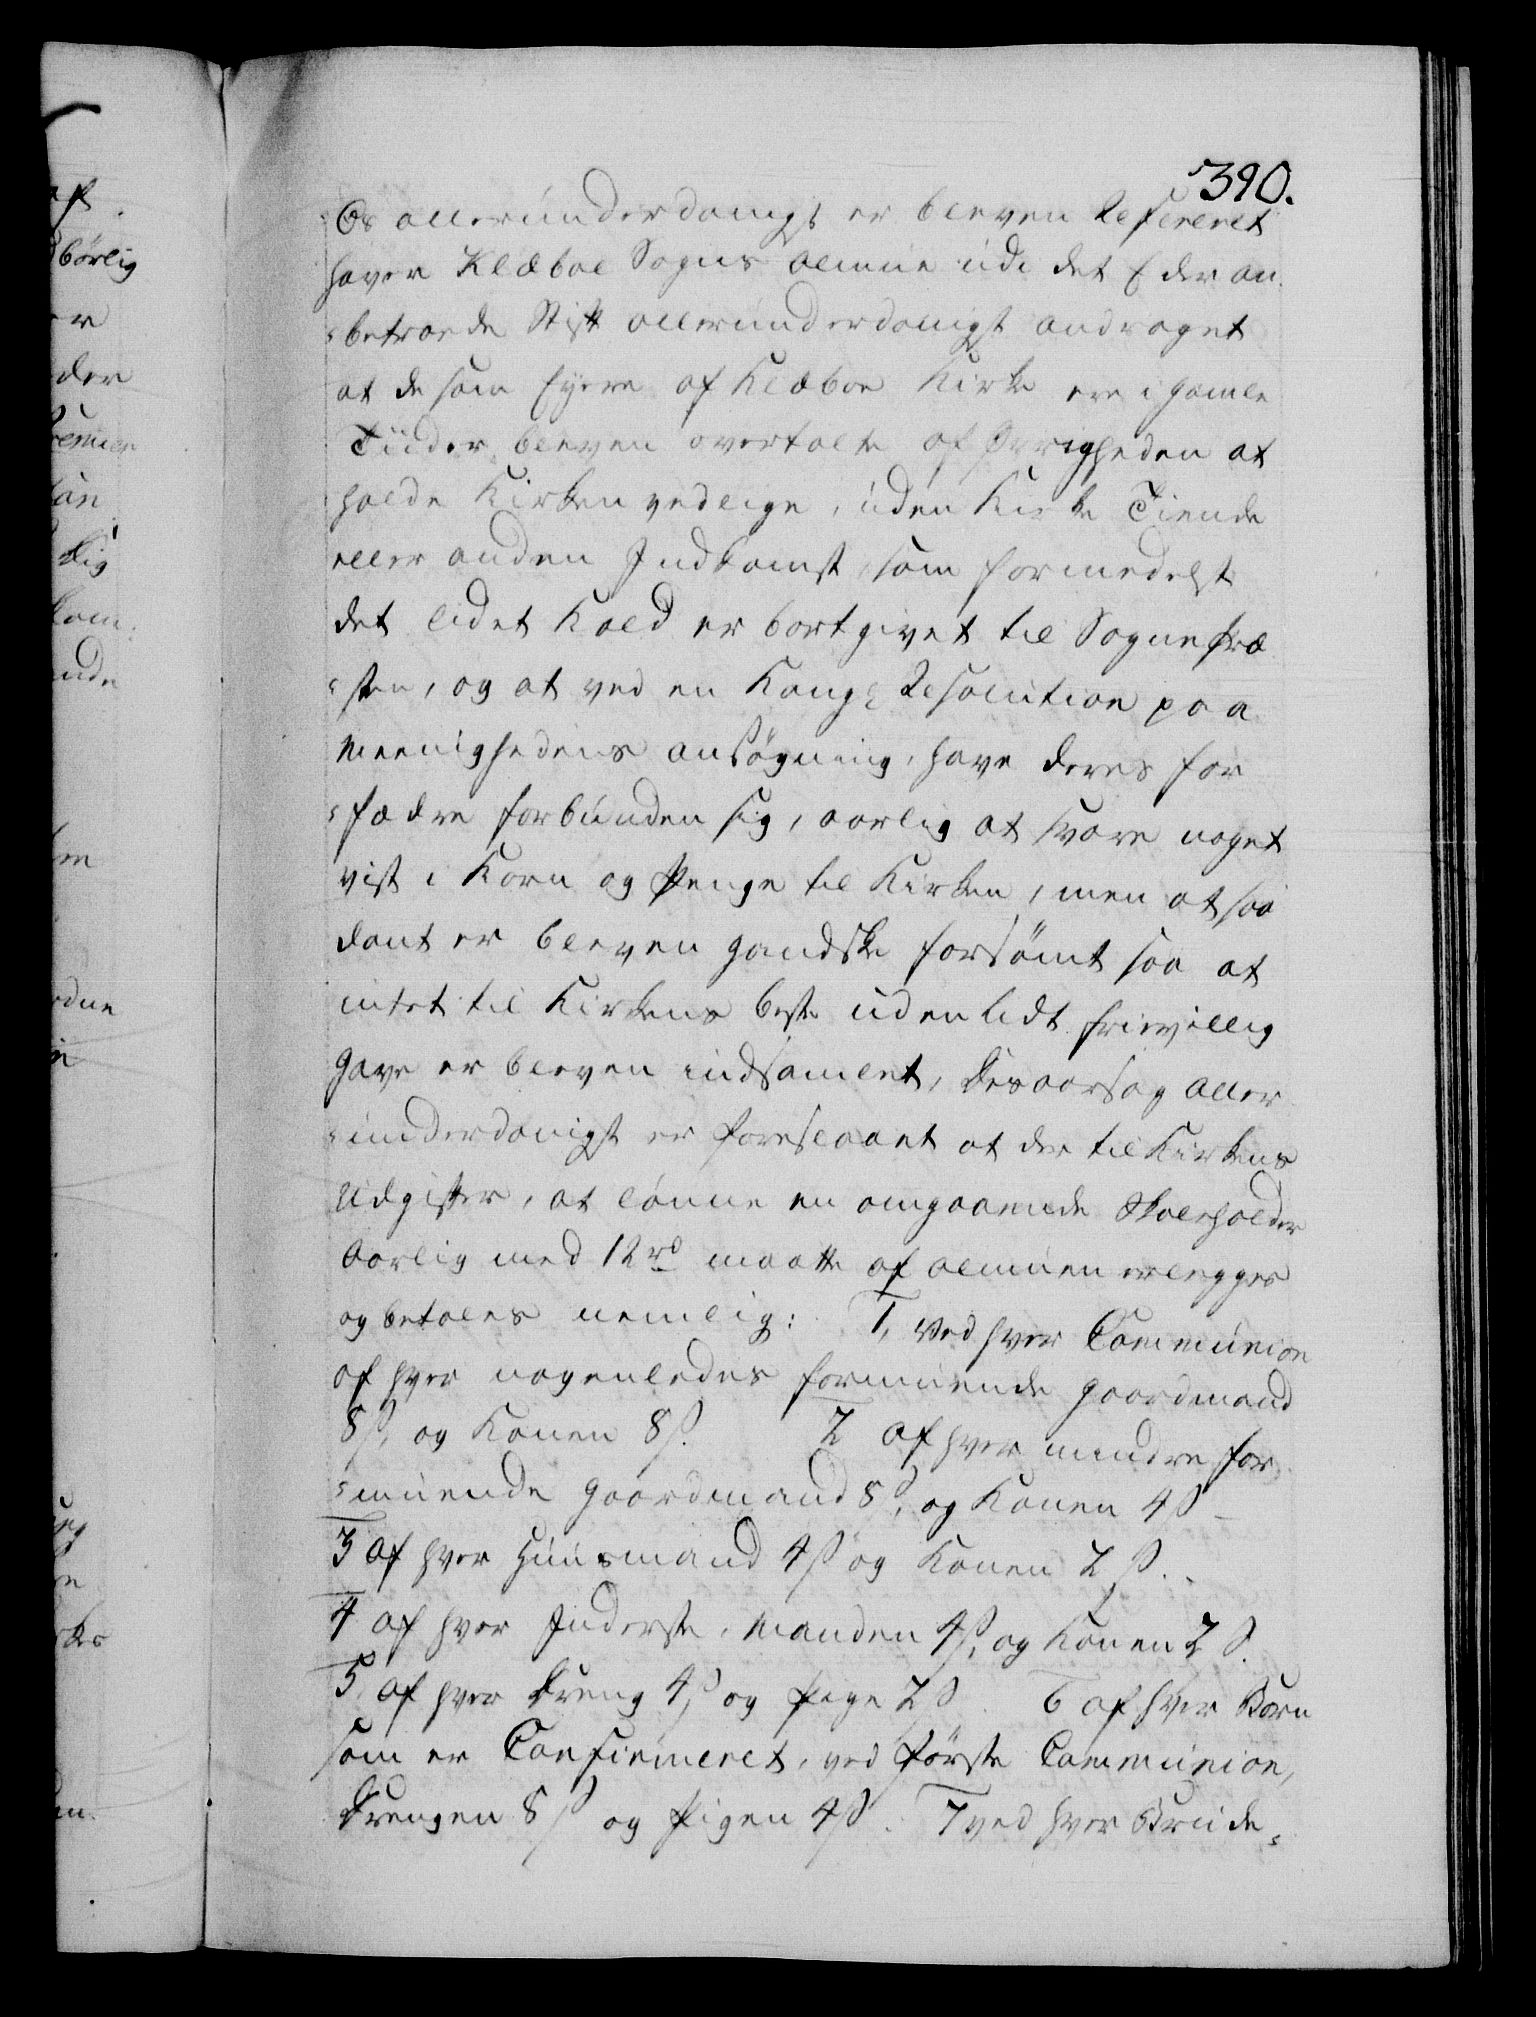 390.
Os allerunderdanigst er bleven Refereret
haver Klæboe Sogns Almue udi det Eder an-
betroede Stift allerunderdanigst andraget
at de som Eyere af Klæboe Kirke ere i gamle
Tiider bleven overtalte af Øvrigheden at
holde Kirken vedlige, uden Kirke Tiende
eller anden Indkomst, som formedelst
det lidet Kald er bortgivet til Sognepræ-
sten, og at ved en Kongl. Resolution paa
Meenighedens ansøgning, have deres for-
fædre forbunden sig, aarlig at svare noget
vist i Korn og Penge til Kirken, men at saa
dant er bleven gandske forsømt saa at
intet til Kirkens beste uden lidt frievillig
Gave er bleven indsamlet, desaarsag aller
underdanigst er foreslaaet at der til Kirkens
Udgifter, at lønne en omgaaende Skoleholder
Aarlig med 12 rd maatte af Almuen erlegges
og betales nemlig: 1, Ved hver Communion
af hver nogenledes formuende Gaardmand
8 s, og Konen 8 s. 2 Af hver mindre for-
muende Gaardmand 8 s, og Konen 4 s
3 Af hver Huusmand 4 s og Konen 2 s.
4 Af hver Inderste, Manden 4 s, og Konen 2 s.
5, Af hver Dreng 4 s og Pige 2 s. 6 Af hver Barn
som er Confirmeret, ved første Communion,
Drengen 8 s og Pigen 4 s. 7 Ved hver Brude-